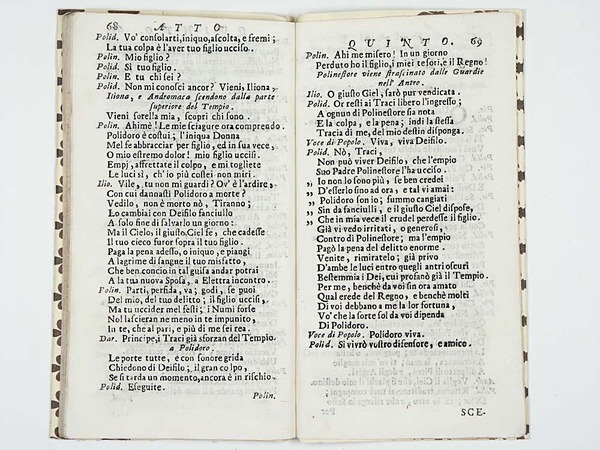 68 ATTO
Polid. Vo' consolarti, iniquo, ascolta, e fremi;
La tua colpa è l'aver tuo figlio ucciso.
Polin. Mio figlio?
Polid. Sì tuo figlio.
Polin. E tu chi sei?
Polid. Non mi conosci ancor? Vieni, Iliona,
Iliona, e Andromaca scendono dalla parte
superiore del Tempio.
Vieni sorella mia, scopri chi sono.
Polin. Ahimè! Le mie sciagure ora comprendo.
Polidoro è costui; l'iniqua Donna
Mel fe abbracciar per figlio, ed in sua vece,
O mio estremo dolor! mio figlio uccisi.
Empj, affrettate il colpo, e mi togliete
Le luci sì, ch'io più costei non miri.
Ilio. Vile, tu non mi guardi? Ov'è l'ardire,
Con cui dannasti Polidoro a morte?
Vedilo, non è morto nò, Tiranno;
Lo cambiai con Deifilo fanciullo
A solo fine di salvarlo un giorno:
Ma il Cielo, il giusto Ciel fè, che cadesse
Il tuo cieco furor sopra il tuo figlio.
Paga la pena adesso, o iniquo, e piangi
A lagrime di sangue il tuo misfatto,
Che ben concio in tal guisa andar potrai
A la tua nuova Sposa, a Elettra incontro.
Polin. Parti, perfida, va; godi, se puoi
Del mio, del tuo delitto; il figlio uccisi,
Ma tu uccider mel festi; i Numi forse
Nol lascieran ne meno in te impunito,
In te, che al pari, e più di me sei rea.
Dar. Principe, i Traci già sforzan del Tempio
a Polidoro.
Le porte tutte, e con sonore grida
Chiedono di Deifilo; il gran colpo,
Se si tarda un momento, ancora è in rischio.
Polid. Eseguite.
Polin.
QUINTO. 69
Polin. Ahi me misero! In un giorno
Perduto ho il figlio, i miei tesori, e il Regno!
Polinestore viene strascinato dalle Guardie
nell' Antro.
Ilio. O giusto Ciel, sarò pur vendicata.
Polid. Or resti ai Traci libero l'ingresso;
A ognun di Polinestore sia nota
E la colpa, e la pena; indi la stessa
Tracia di me, del mio destin disponga.
Voce di Popolo. Viva, viva Deifilo.
Polid. Nò, Traci,
Non può viver Deifilo, che l'empio
Suo Padre Polinestore l'ha ucciso.
„ Io non lo sono più, se ben credei
„ D'esserlo sino ad ora, e tal v'amai:
„ Polidoro son io; summo cangiati
„ Sin da fanciulli, e il giusto Ciel dispose,
„ Che in mia vece il crudel perdesse il figlio.
Già vi vedo irritati, o generosi,
Contro di Polinestore; ma l'empio
Pagò la pena del delitto enorme.
Venite, rimiratelo; già privo
D'ambe le luci entro quegli antri oscuri
Bestemmia i Dei, cui profanò già il Tempio.
Per me, benchè da voi sin ora amato
Qual erede del Regno, e benchè molti
Di voi debbano a me la lor fortuna,
Vo' che la sorte sol da voi dipenda
Di Polidoro.
Voce di Popolo. Polidoro viva.
Polid. Sì vivrò vostro difensore, e amico.
SCE-